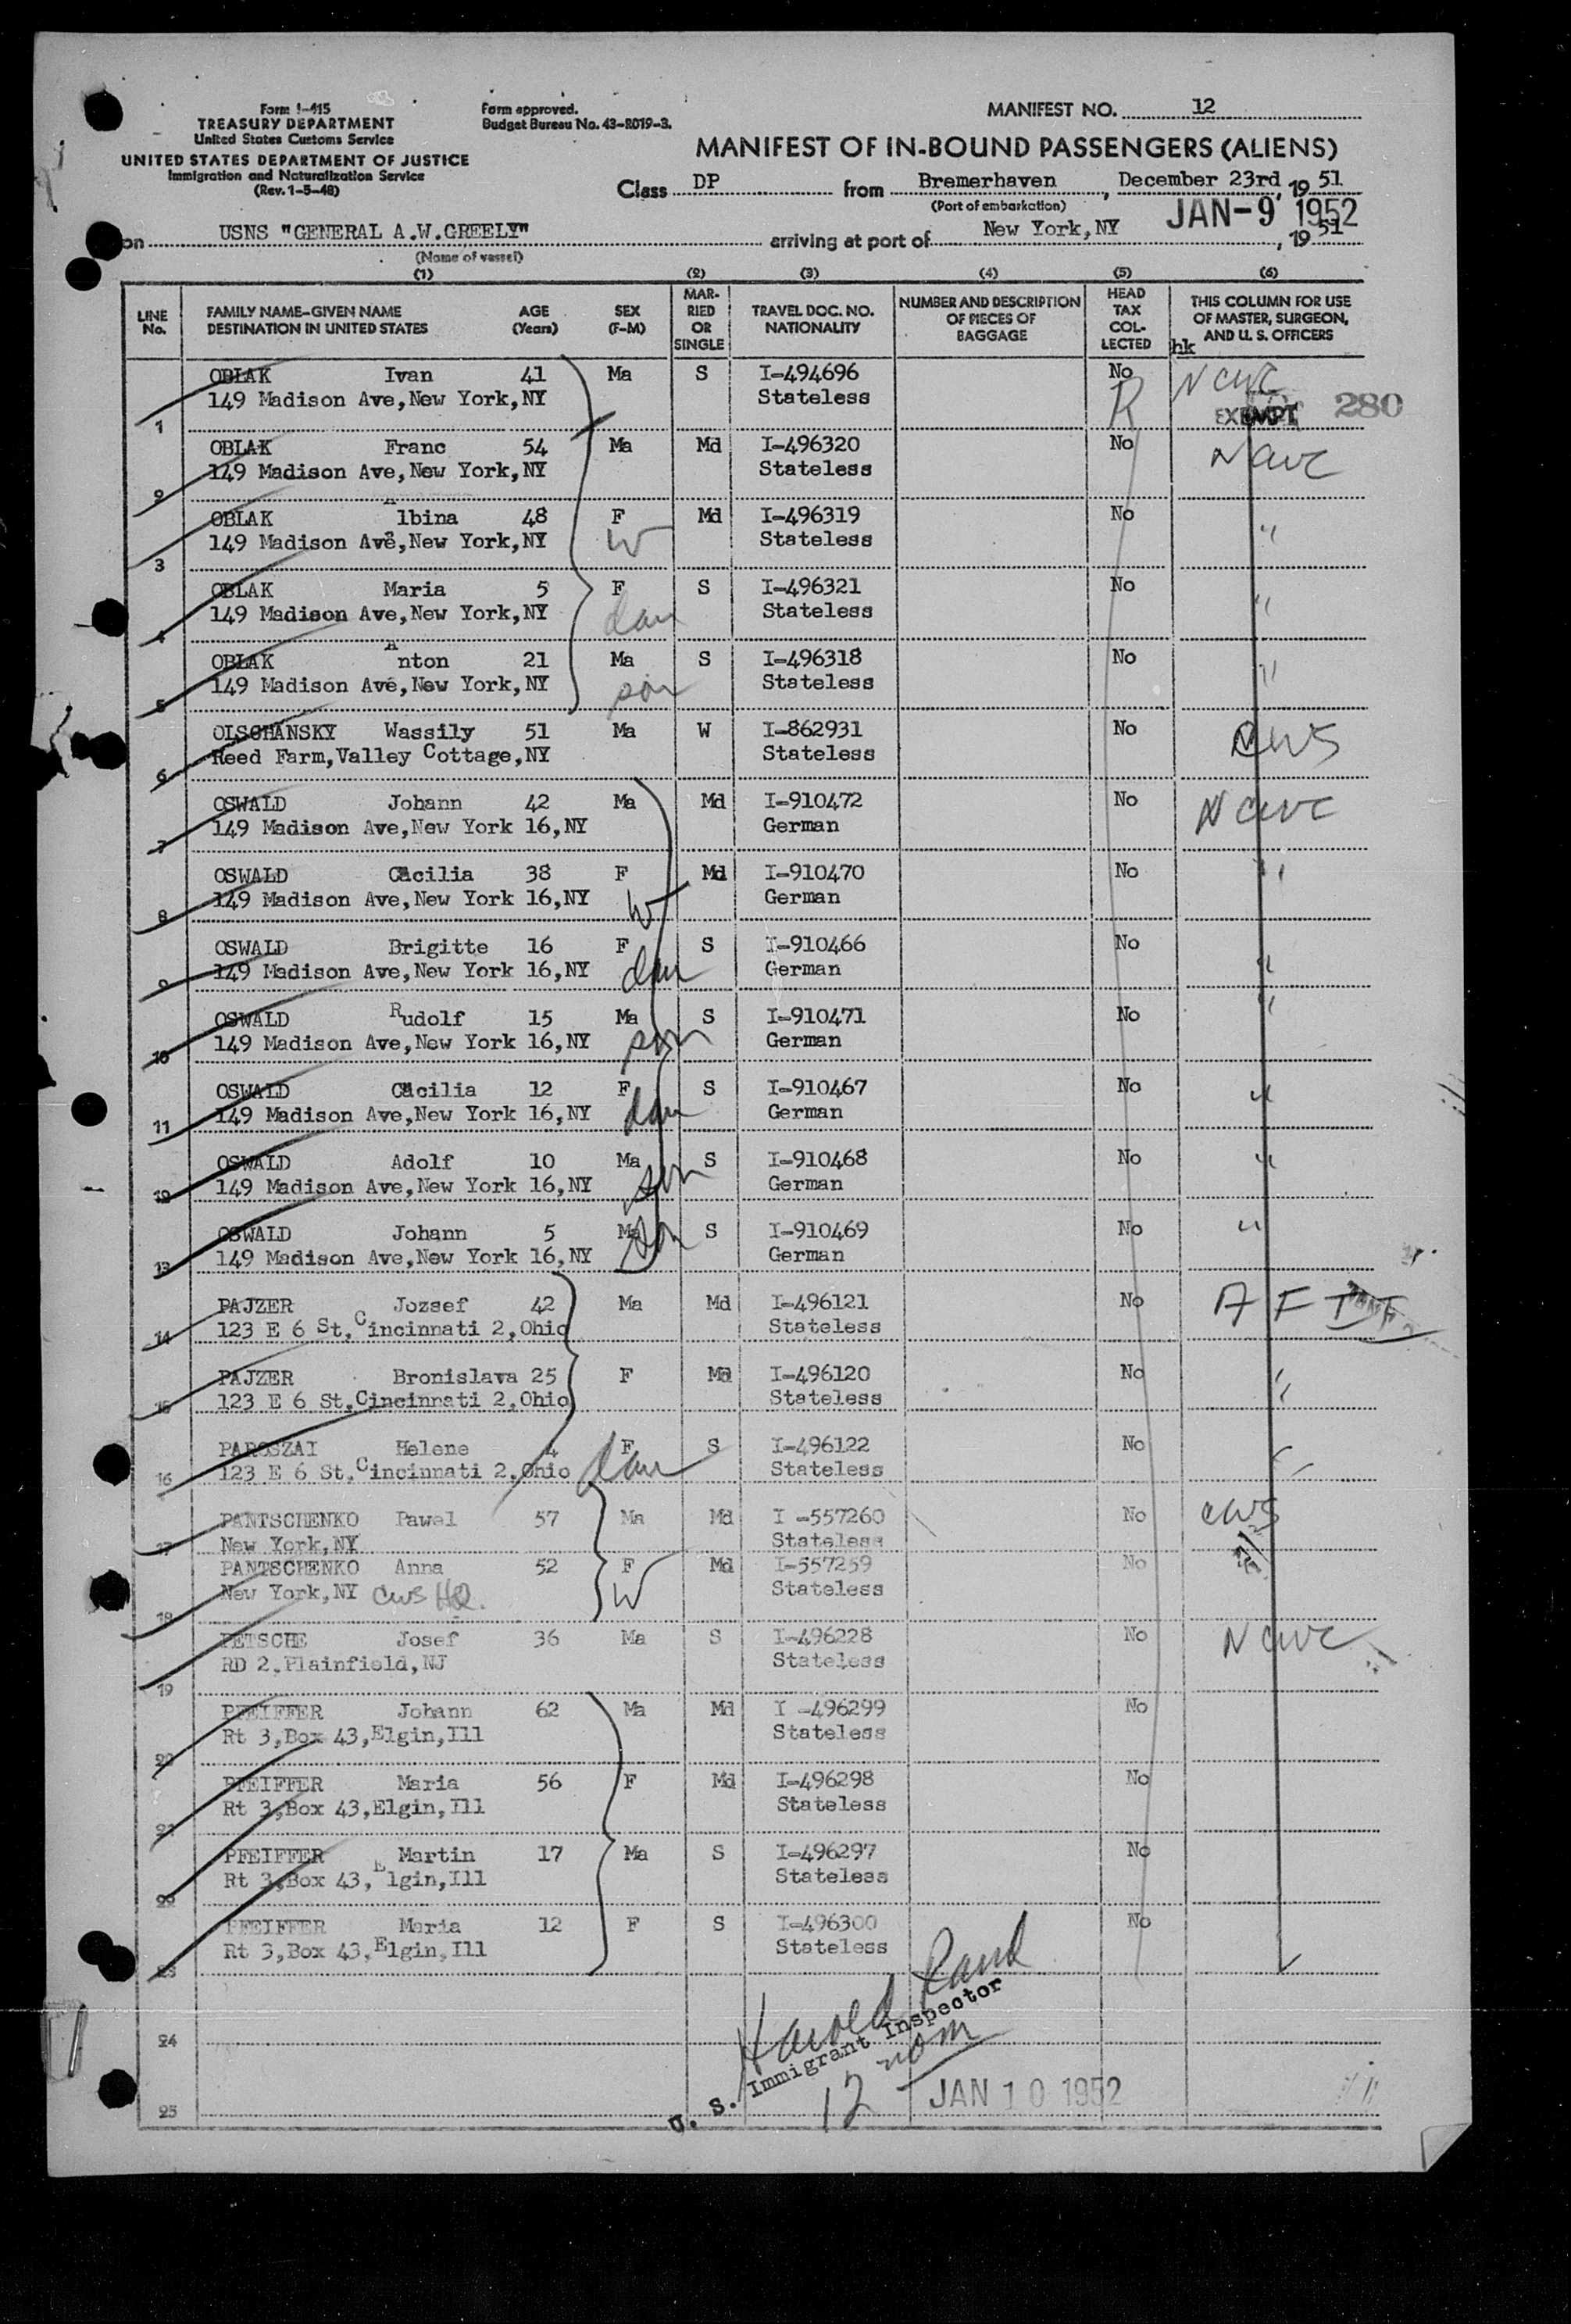 Form I-415
TREASURY DEPARTMENT
United States Customs Service
UNITED STATES DEPARTMENT OF JUSTICE
Immigration and Naturalization Service
(Rev. 1-5-48)
Form approved.
Budget Bureau No. 43-R019-3.
MANIFEST NO. 12
MANIFEST OF IN-BOUND PASSENGERS (ALIENS)
Class DP from Bremerhaven, December 23rd, 19 51
(Port of embarkation)
JAN-9 1952
on USNS "GENERAL A.W.GREELY" arriving at port of New York,NY, 19 51
(Name of vessel)
(1) (2) (3) (4) (5) (6)
LINE No.
FAMILY NAME-GIVEN NAME
DESTINATION IN UNITED STATES
AGE (Years)
SEX (F-M)
MAR-RIED OR SINGLE
TRAVEL DOC. NO. NATIONALITY
NUMBER AND DESCRIPTION OF PIECES OF BAGGAGE
HEAD TAX COL-LECTED
THIS COLUMN FOR USE OF MASTER, SURGEON, AND U. S. OFFICERS
hk
OBLAK Ivan 41 Ma S I-494696 No NCWC
1 149 Madison Ave,New York,NY Stateless R EXEMPT 280
OBLAK Franc 54 Ma Md I-496320 No NCWC
2 149 Madison Ave,New York,NY Stateless
OBLAK Albina 48 F Md I-496319 No "
3 149 Madison Ave,New York,NY W Stateless
OBLAK Maria 5 F S I-496321 No "
4 149 Madison Ave,New York,NY dau Stateless
OBLAK Anton 21 Ma S I-496318 No "
5 149 Madison Ave,New York,NY son Stateless
OLSCHANSKY Wassily 51 Ma W I-862931 No CWS
6 Reed Farm,Valley Cottage,NY Stateless
OSWALD Johann 42 Ma Md I-910472 No NCWC
7 149 Madison Ave,New York 16,NY German
OSWALD Cäcilia 38 F Md I-910470 No "
8 149 Madison Ave,New York 16,NY W German
OSWALD Brigitte 16 F S I-910466 No "
9 149 Madison Ave,New York 16,NY dau German
OSWALD Rudolf 15 Ma S I-910471 No "
10 149 Madison Ave,New York 16,NY son German
OSWALD Cäcilia 12 F S I-910467 No "
11 149 Madison Ave,New York 16,NY dau German
OSWALD Adolf 10 Ma S I-910468 No "
12 149 Madison Ave,New York 16,NY son German
OSWALD Johann 5 Ma S I-910469 No "
13 149 Madison Ave,New York 16,NY son German
PAJZER Jozsef 42 Ma Md I-496121 No
14 123 E 6 St,Cincinnati 2,Ohio Stateless
PAJZER Bronislava 25 F Md I-496120 No "
15 123 E 6 St,Cincinnati 2,Ohio Stateless
PAROSZAI Helene 4 F S I-496122 No "
16 123 E 6 St,Cincinnati 2,Ohio dau Stateless
PANTSCHENKO Pawel 57 Ma Md I -557260 No CWS
17 New York,NY Stateless
PANTSCHENKO Anna 52 F Md I-557259 No
18 New York,NY CWS HQ. W Stateless
PETSCHE Josef 36 Ma S I-496228 No NCWC
19 RD 2,Plainfield,NJ Stateless
PFEIFFER Johann 62 Ma Md I -496299 No
20 Rt 3,Box 43,Elgin,Ill Stateless
PFEIFFER Maria 56 F Md I-496298 No
21 Rt 3,Box 43,Elgin,Ill Stateless
PFEIFFER Martin 17 Ma S I-496297 No
22 Rt 3,Box 43,Elgin,Ill Stateless
PFEIFFER Maria 12 F S I-496300 No
23 Rt 3,Box 43,Elgin,Ill Stateless
24
Harold Rand
U. S. Immigrant Inspector
12
JAN 10 1952
25